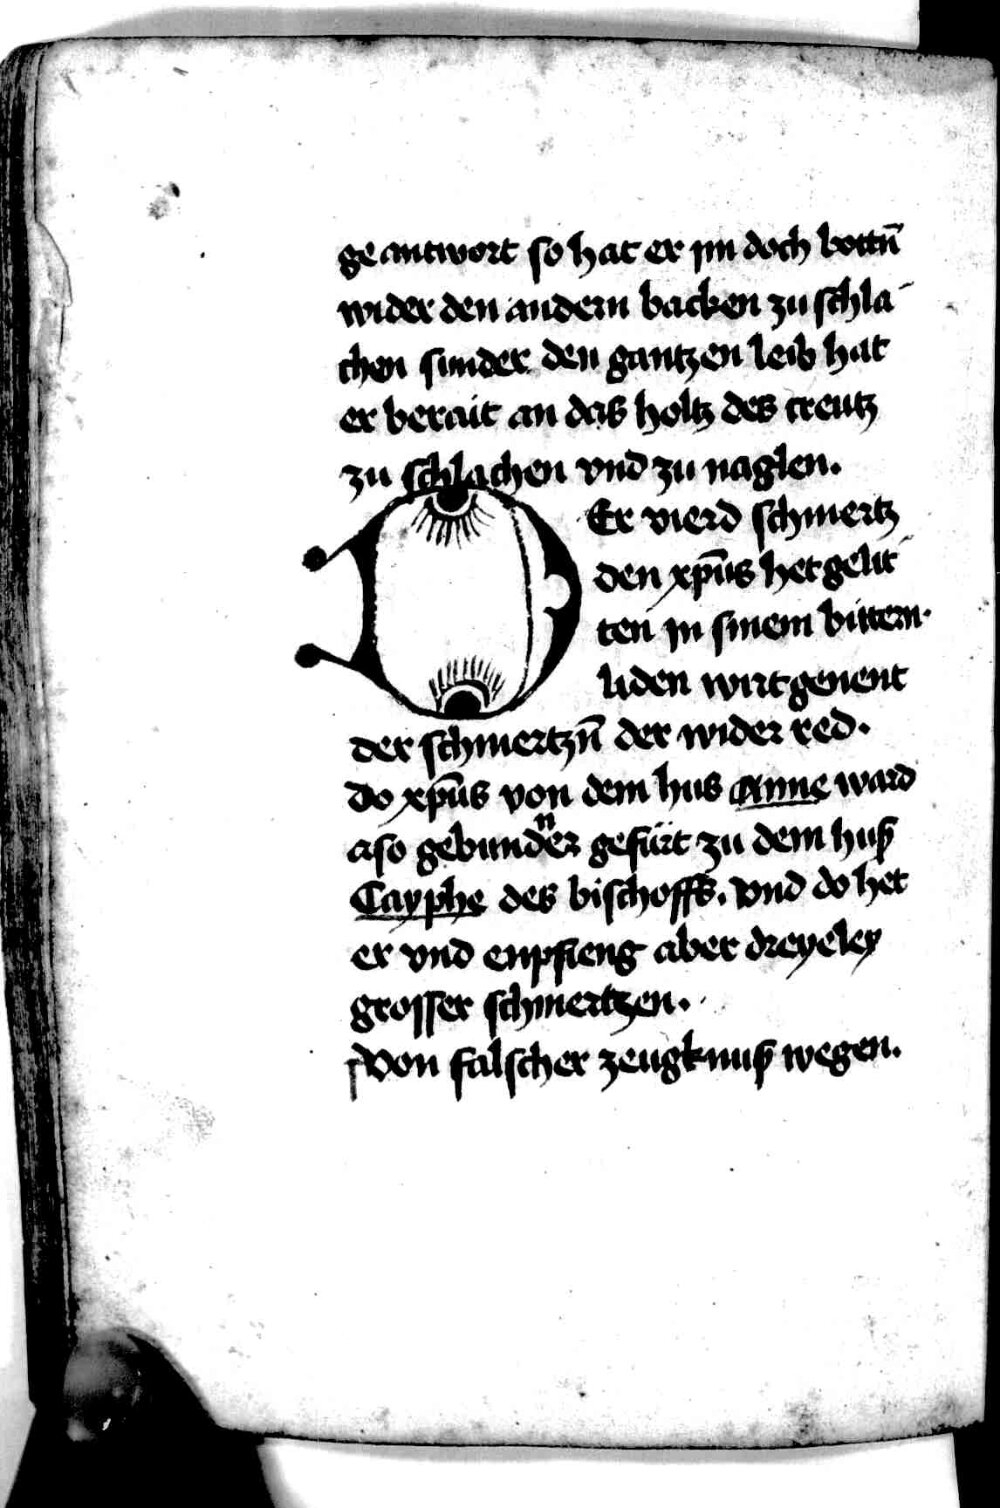 geantwort so hat er im doch bottn̄
wider den andern backen zu schla
chen sunder den gantzen leib hat
er berait an das holtz des creutz
zu schlachen vnd zu naglen.
DEr vierd schmertz
den xp̄us het gelit
ten in sinem bittern.
liden wirt genent
der schmertzn̄ der wider red.
do xp̄us von dem hus Anne ward
aso gebundner gefürt zu dem huß
Cayphe des bischoffs. Vnd do het
er vnd enpfieng aber dreyeley
grosser schmertzen.
Von falscher zeugknuß wegen.